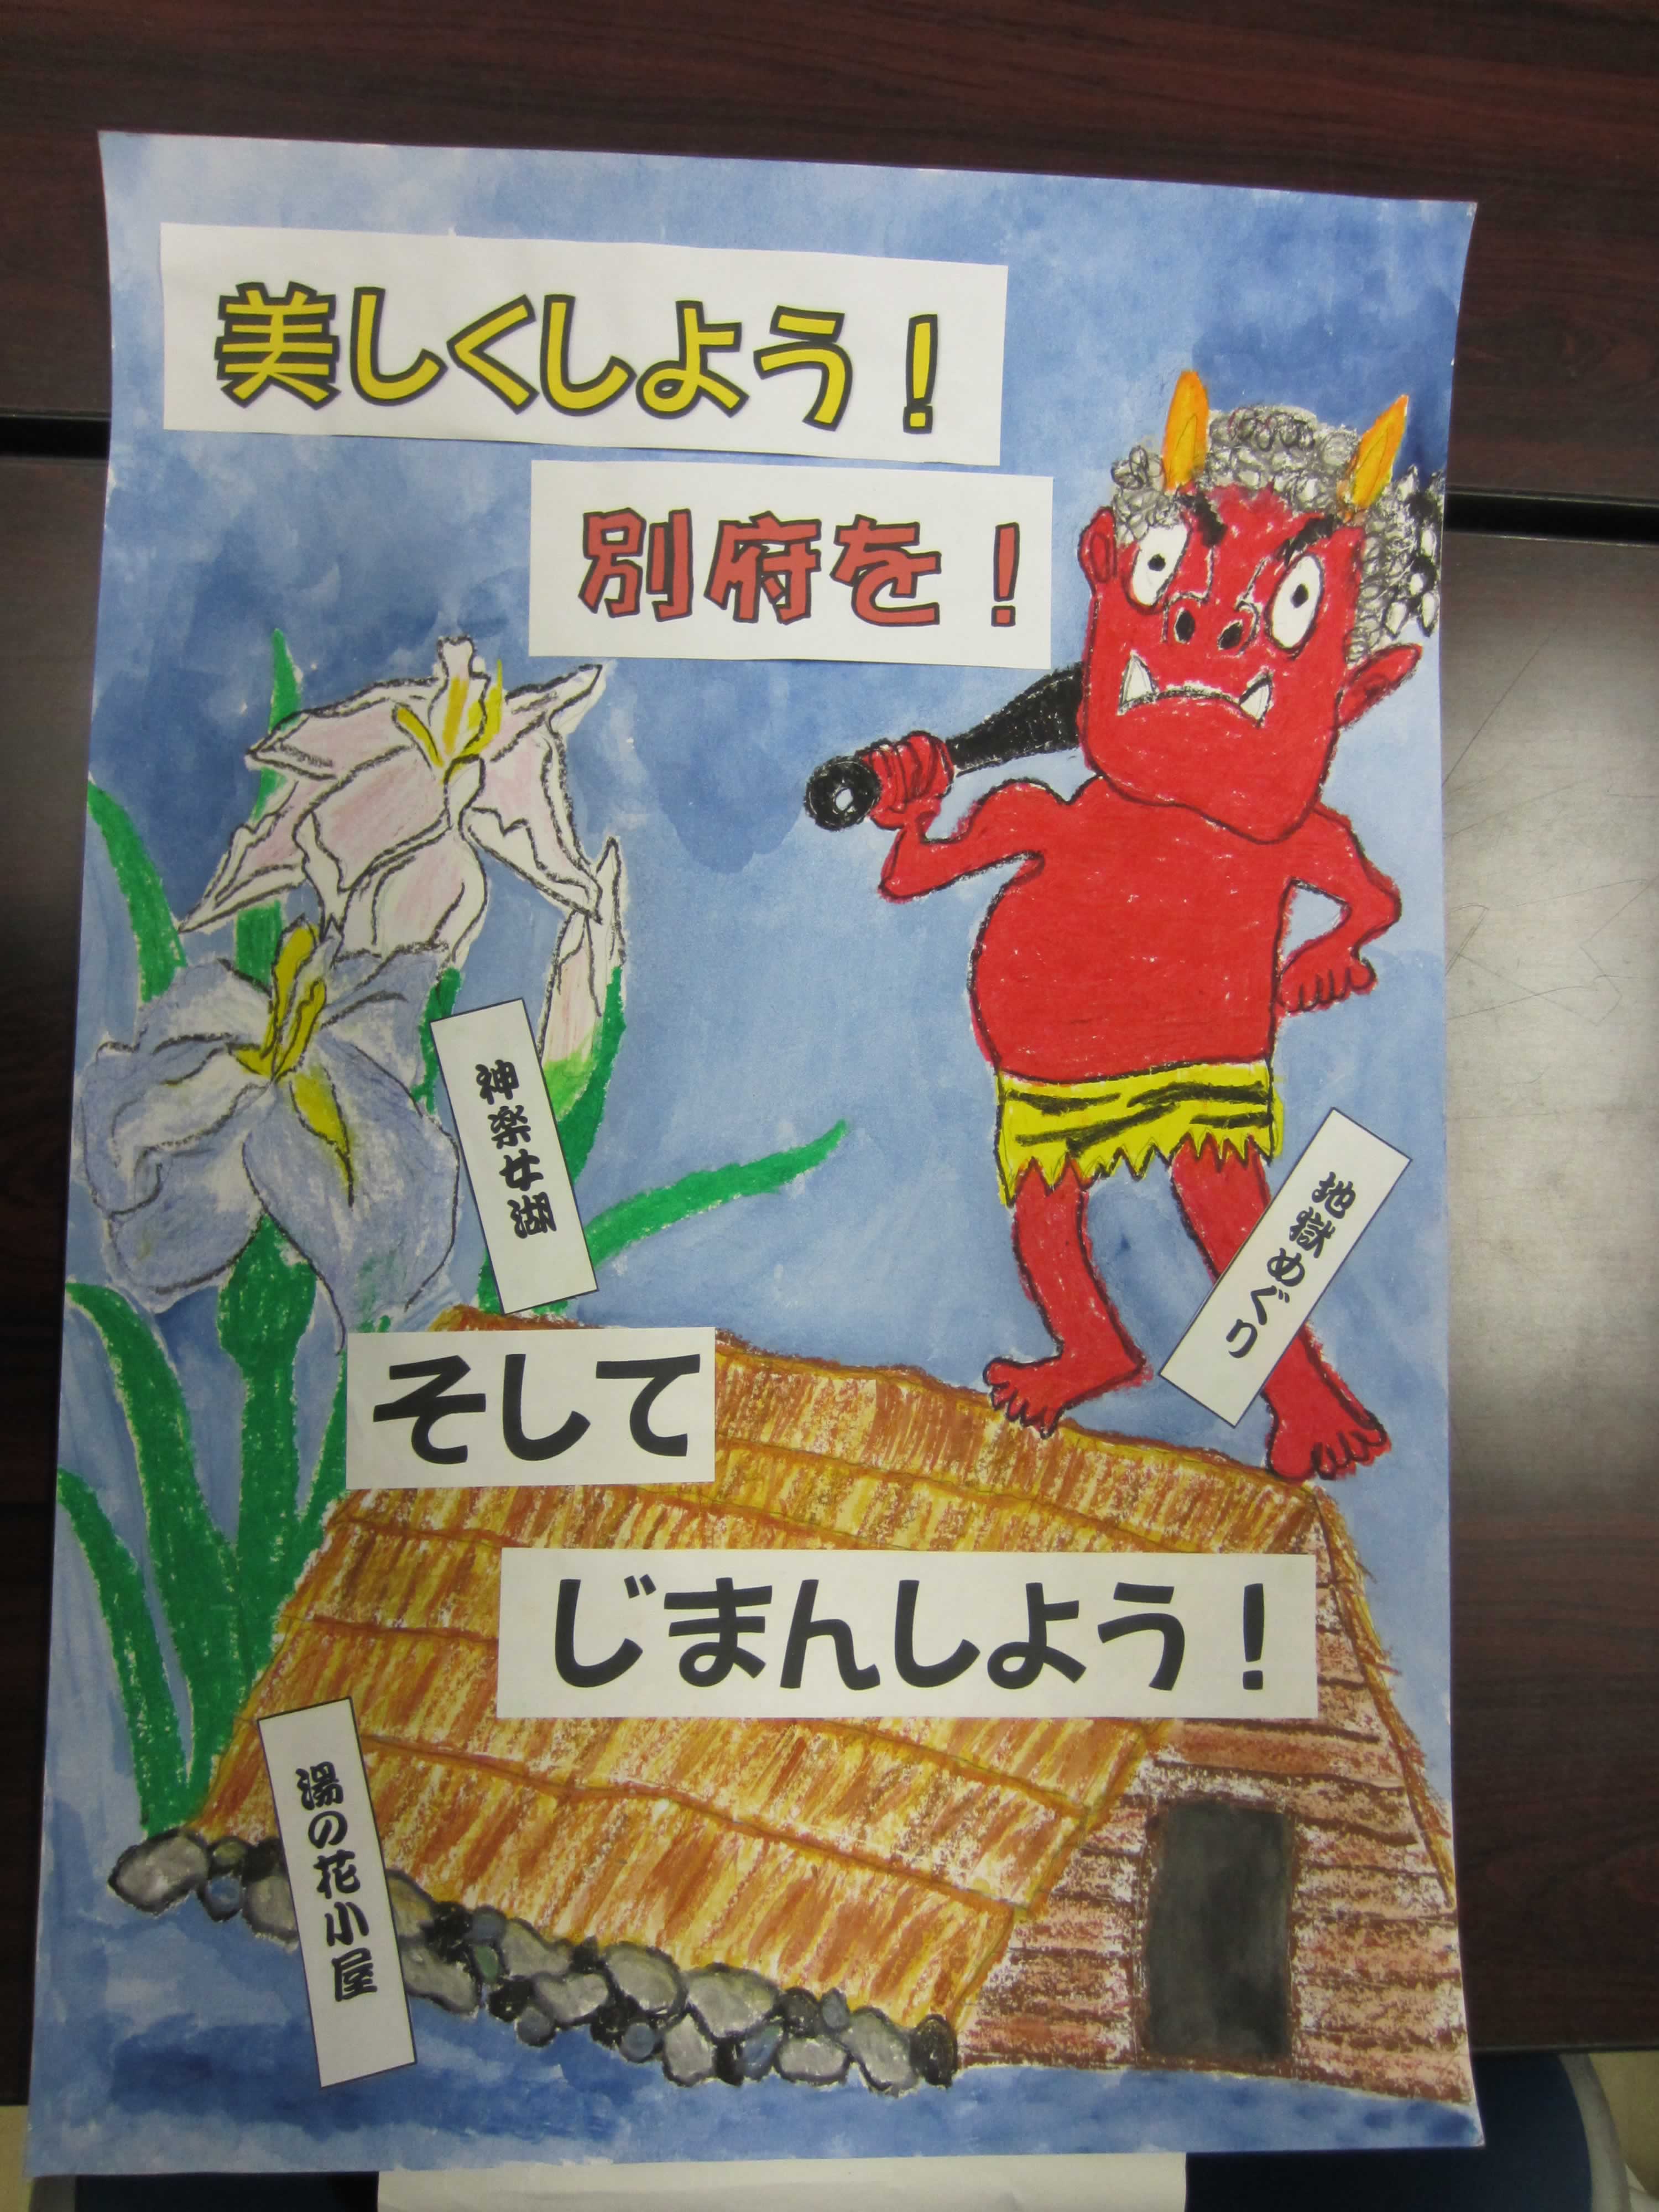 美しくしよう！
別府を！
神楽女湖
地獄めぐり
そして
じまんしよう！
湯の花小屋